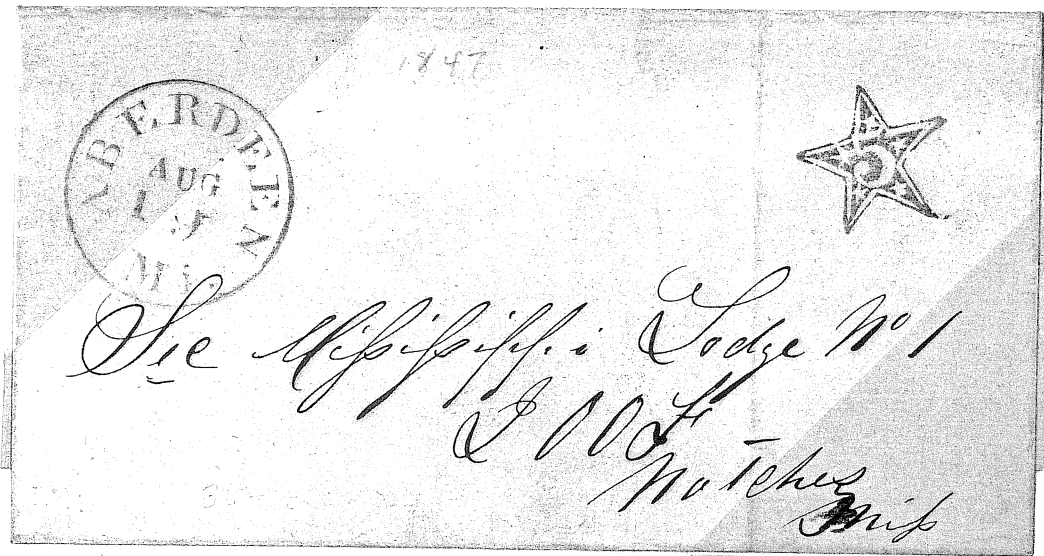 1847
ABERDEEN
AUG
15
Mi.
5
Sec Mississippi Lodge No 1
I O O F
Natchez
Miss